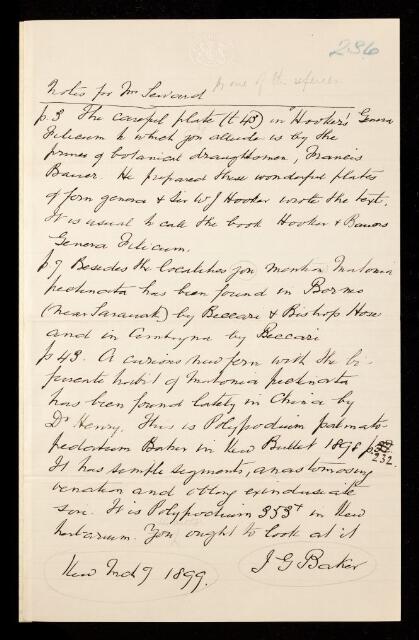 236
by one of the referees
Notes for Mr Seward
p. 3 The careful plate (t 43) in "Hooker's Genera
Filicum to which you allude is by the
prince of botanical draughtsmen, Francis
Bauer. He prepared these wonderful plates
of fern genera & Sir W J Hooker wrote the text.
It is usual to call the book Hooker & Bauers
Genera Filicum.
p 7. Besides the localities you mention Matonia
pectinata has been found in Borneo
(near Sarawak) by Beccari & Bishop Hose
and in Amboyna by Beccari
p 43. A curious new fern with the bi-
furcate habit of Matonia pectinata
has been found lately in China by
Dr Henry. This is Polypodium palmato-
pedatum Baker in Kew Bullet 1898 p.
232.
It has simple segments, anastomosing
venation and oblong exindusiate
sori. It is Polypodium 353+ in Kew
herbarium. You ought to look at it
Kew Mch 7 1899. J G Baker